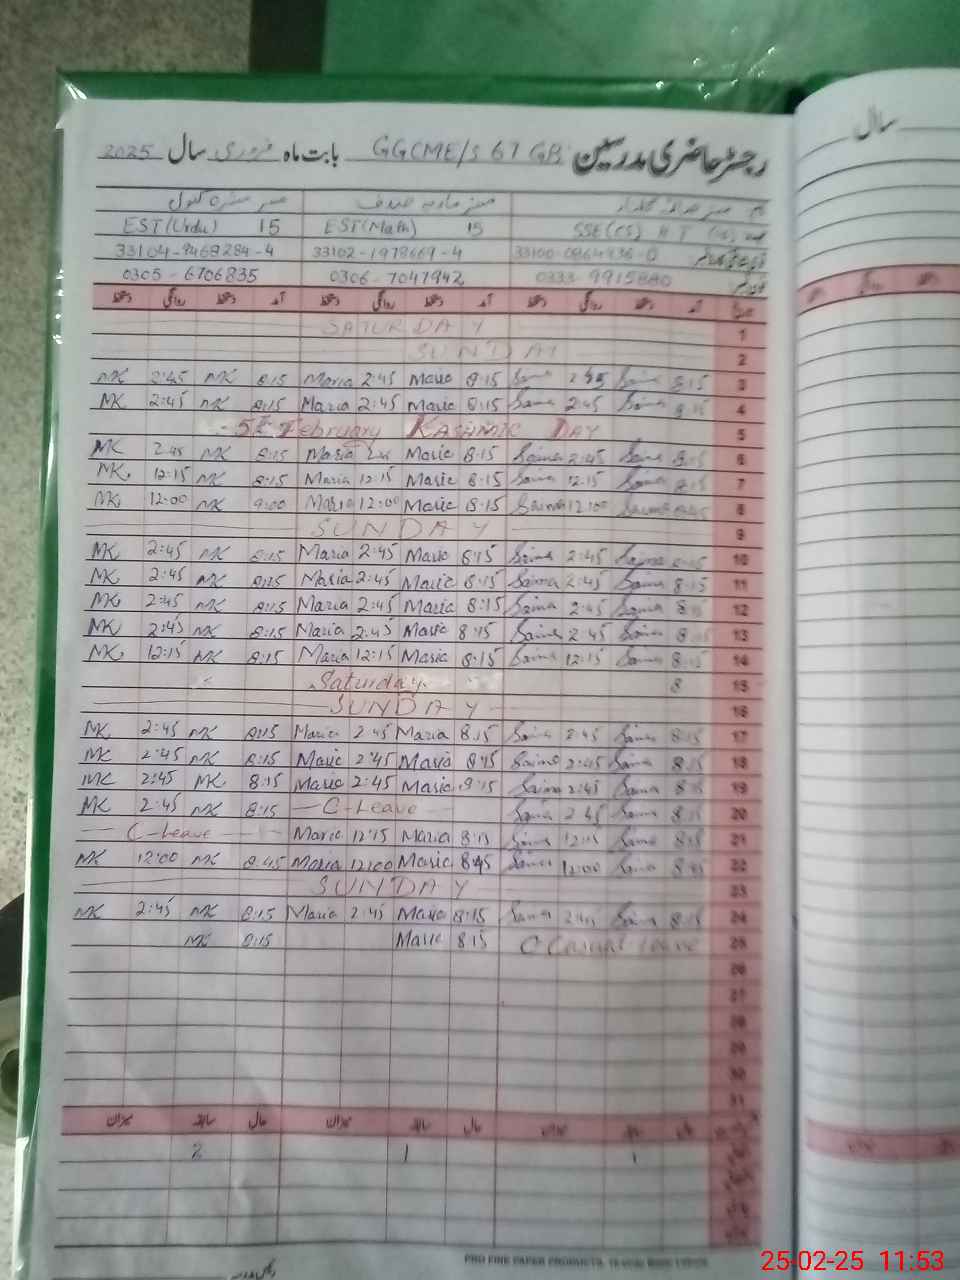 رجسٹر حاضری مدرسین GGCME/S 67 GB بابت ماہ فروری سال 2025
سال
EST(Urdu) 15 EST(Math) 15 SSE(CS)
33104-9468284-4 33102-1978669-4 33100-0864936-0
0305-6706835 0306-7047942 0333-9915880
دستخط روانگی دستخط آمد دستخط روانگی دستخط آمد دستخط روانگی دستخط آمد تاریخ
SATURDAY 1
SUNDAY 2
MK 2:45 MK 8:15 Maria 2:45 Maria 8:15 Saima 2:45 Saima 8:15 3
MK 2:45 MK 8:15 Maria 2:45 Maria 8:15 Saima 2:45 Saima 8:15 4
5th February KASHMIR DAY 5
MK 2:45 MK 8:15 Maria 2:45 Maria 8:15 Saima 2:45 Saima 8:15 6
MK 12:15 MK 8:15 Maria 12:15 Maria 8:15 Saima 12:15 Saima 8:15 7
MK 12:00 MK 9:00 Maria 12:00 Maria 8:15 Saima 12:00 Saima 8:45 8
SUNDAY 9
MK 2:45 MK 8:15 Maria 2:45 Maria 8:15 Saima 2:45 Saima 8:15 10
MK 2:45 MK 8:15 Maria 2:45 Maria 8:15 Saima 2:45 Saima 8:15 11
MK 2:45 MK 8:15 Maria 2:45 Maria 8:15 Saima 2:45 Saima 8:15 12
MK 2:45 MK 8:15 Maria 2:45 Maria 8:15 Saima 2:45 Saima 8:15 13
MK 12:15 MK 8:15 Maria 12:15 Maria 8:15 Saima 12:15 Saima 8:15 14
Saturday 8 15
SUNDAY 16
MK 2:45 MK 8:15 Maria 2:45 Maria 8:15 Saima 2:45 Saima 8:15 17
MK 2:45 MK 8:15 Maria 2:45 Maria 8:15 Saima 2:45 Saima 8:15 18
MK 2:45 MK 8:15 Maria 2:45 Maria 8:15 Saima 2:45 Saima 8:15 19
MK 2:45 MK 8:15 C-Leave Saima 2:45 Saima 8:15 20
C-Leave Maria 12:15 Maria 8:15 Saima 12:15 Saima 8:15 21
MK 12:00 MK 8:45 Maria 12:00 Maria 8:45 Saima 12:00 Saima 8:45 22
SUNDAY 23
MK 2:45 MK 8:15 Maria 2:45 Maria 8:15 Saima 2:45 Saima 8:15 24
MK 8:15 Maria 8:15 C Casual leave 25
26
27
28
29
30
31
میزان سابقہ حال میزان سابقہ حال میزان سابقہ حال
2 1 1
25-02-25 11:53